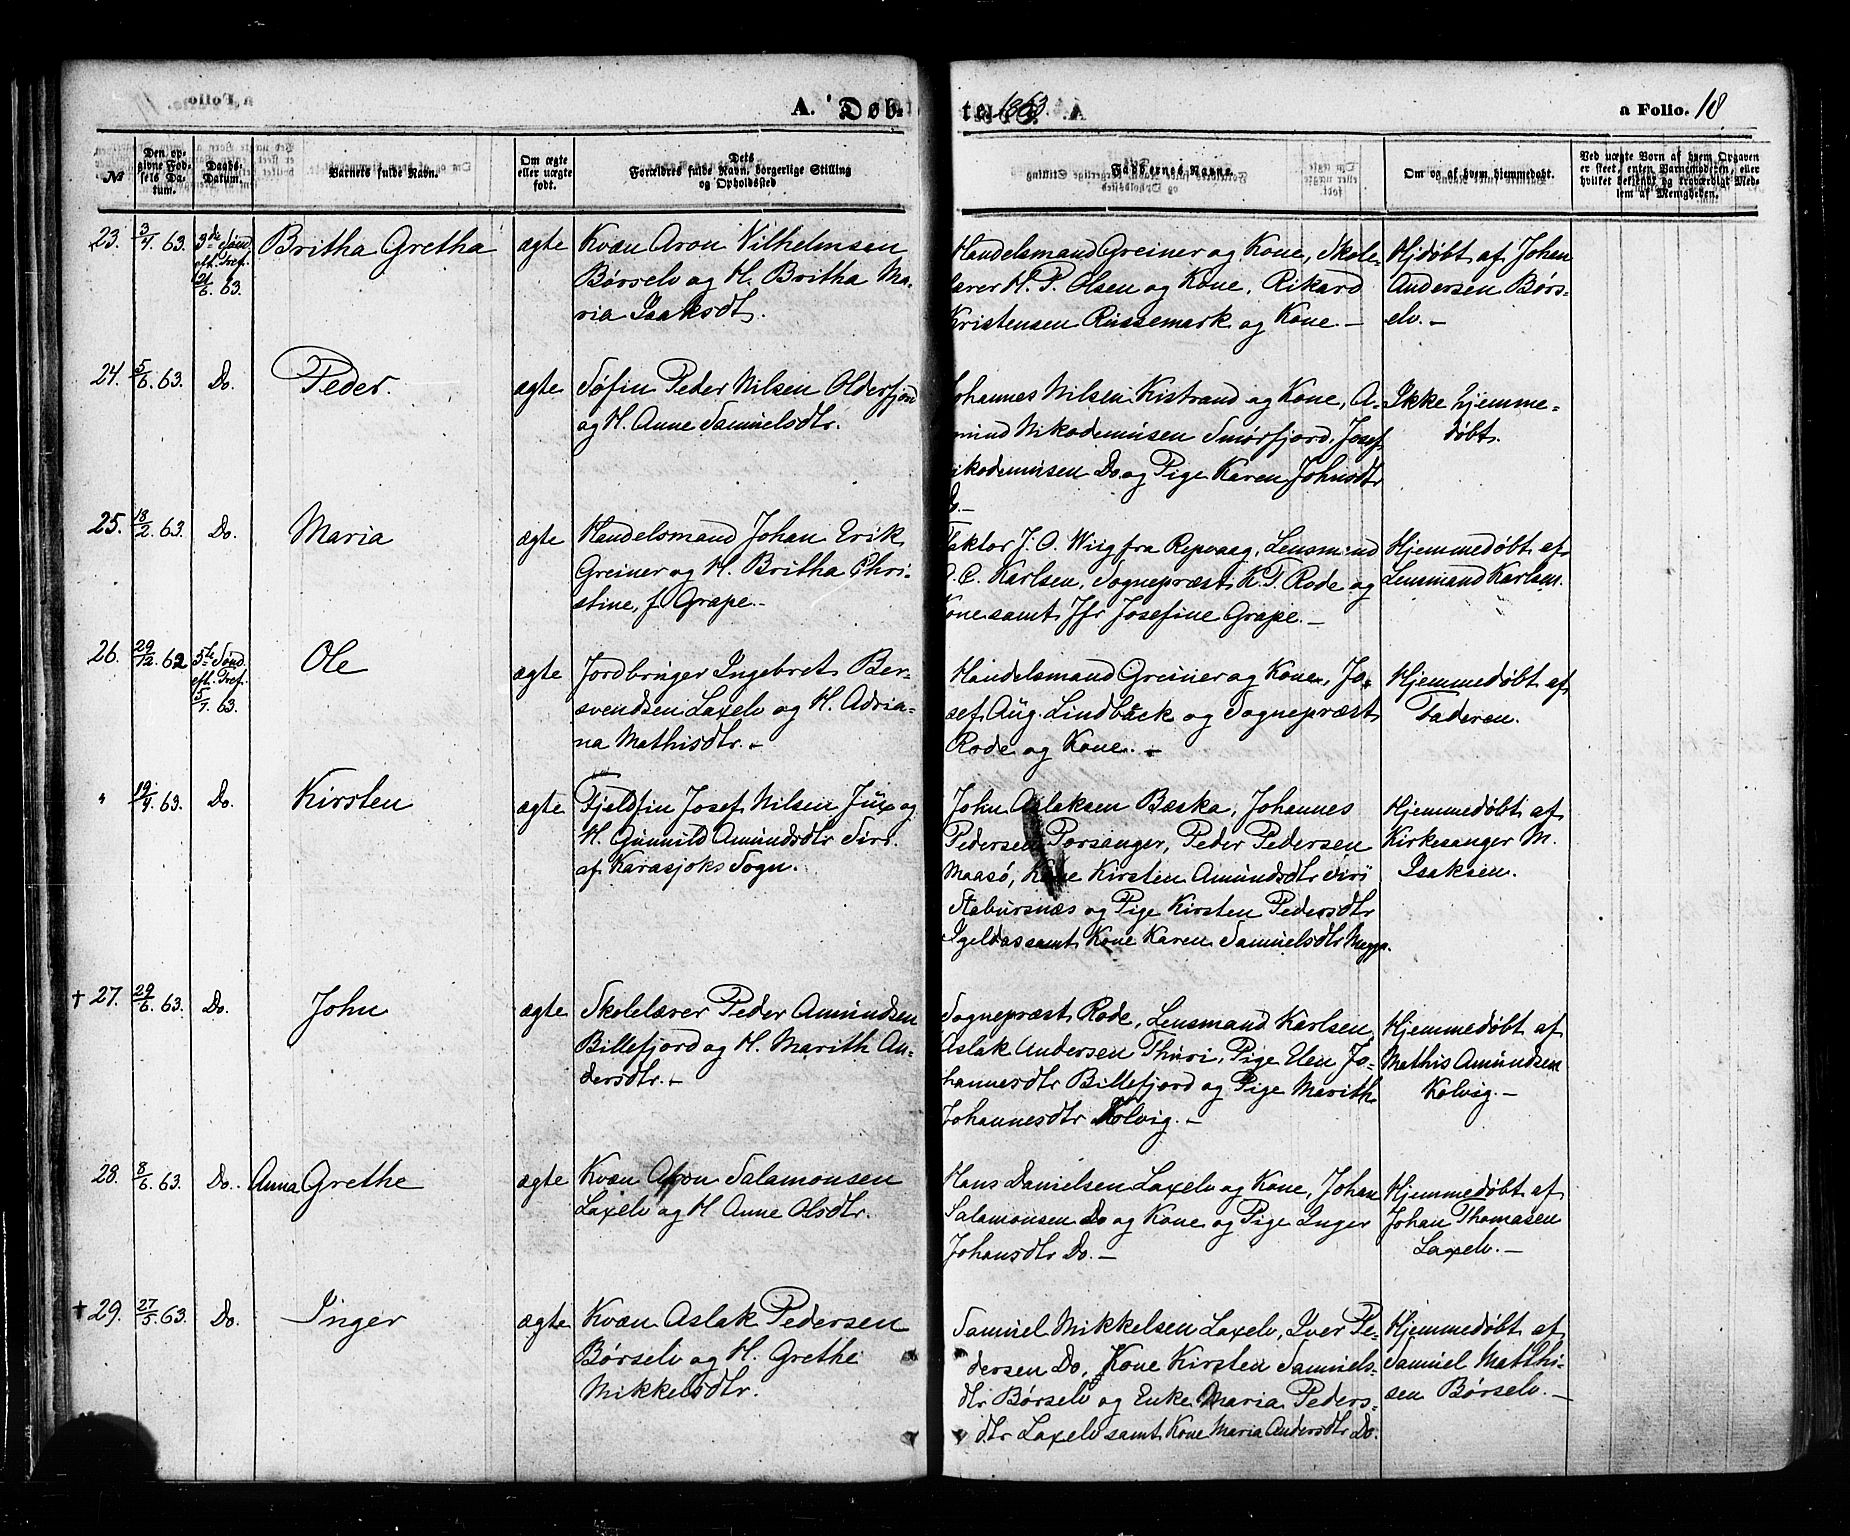 A. Døb- te 1863. a Folio. 18
№
Den op-
givne Fød-
sels Da-
tum.
Daabs-
Datum.
Barnets fulde Navn.
Om ægte
eller uægte
født.
Dets
Forældres fulde Navn, borgerlige Stilling
og Opholdssted
Faddernes Navne.
Om og af hvem hjemmedøbt.
Ved uægte Børn af hvem Opgaven
er skeet, enten Barnemoderen, eller
hvilket bekjendt og troværdigt Med-
lem af Menigheden.
23. 3/4 63.
3die Sønd.
eft. Tref.
21/6 63.
Britha Gretha
ægte
Kvæn Aron Vilhelmsen
Børselv og H. Britha Ma-
ria Isaksdt.
Handelsmand Greiner og Kone, Skole-
lærer H. P. Olsen og Kone, Rikard
Kristensen Russemark og Kone. –
Hjdøbt af Johan
Andersen Børs-
elv. –
24. 5/6 63. Do. Peder. ægte
Søfin Peder Nilsen Olderfjord
og H. Anne Samuelsdtr.
Johannes Nilsen Kistrand og Kone, A-
mund Nikodemusen Smørfjord, Josef
Nikodemusen Do og Pige Karen Johnsdtr
Do. –
Ikke hjemme-
døbt.
25. 18/2 63. Do. Maria ægte
Handelsmand Johan Erik
Greiner og H. Britha Chri-
stine, f. Grape. –
Faktor J. O. Wiig fra Repvaag, Lensmand
C. Karlsen, Sognepræst K. T. Rode og
Kone samt Jfr Josefine Grape. –
Hjemmedøbt af
Lensmand Karlsen.
26. 29/12 62
5te Sønd.
eft. Tref.
5/7 63.
Ole
ægte
Jordbruger Ingebret Ber-
svendsen Laxelv og H. Adria-
na Mathisdtr. –
Handelsmand Greiner og Kone, Jo-
sef Aug. Lindbäck og Sognepræst
Rode og Kone. –
Hjemmedøbt af
Faderen.
" 19/4 63. Do. Kirsten ægte
Fjeldfin Josef Nilsen Jux og
H. Gunnild Amundsdtr Siri
af Karasjoks Sogn.
John Aslaksen Bæska, Johannes
Pedersen Porsanger, Peder Pedersen
Maasø, Kone Kirsten Amundsdtr Siri
Stabursnæs og Pige Kirsten Pedersdtr
Igeldas samt Kone Karen Samuelsdtr Mugga.
Hjemmedøbt af
Kirkesanger M.
Isaksen.
† 27. 29/6 63. Do. John ægte
Skolelærer Peder Amundsen
Billefjord og H. Marith An-
dersdtr. –
Sognepræst Rode, Lensmand Karlsen,
Aslak Andersen Thuri, Pige Elen Jo-
hannesdtr Billefjord og Pige Marith
Johannesdtr Kolvig. –
Hjemmedøbt af
Mathis Amundsen
Kolvig. –
28. 8/6 63. Do. Anna Grethe ægte
Kvæn Aron Salamonsen
Laxelv og H. Anne Olsdtr.
Hans Danielsen Laxelv og Kone, Johan
Salamonsen Do og Kone og Pige Inger
Johansdtr Do. –
Hjemmedøbt af
Johan Thomasen
Laxelv. –
† 29. 27/5 63. Do. Inger ægte
Kvæn Aslak Pedersen
Børselv og H. Grethe
Mikkelsdtr.
Samuel Mikkelsen Laxelv, Iver Pe-
dersen Do, Kone Kirsten Samuels-
dtr Børselv og Enke Maria Peders-
dtr Laxelv samt Kone Maria Andersdtr Do.
Hjemmedøbt af
Samuel Matthi-
sen Børselv. –